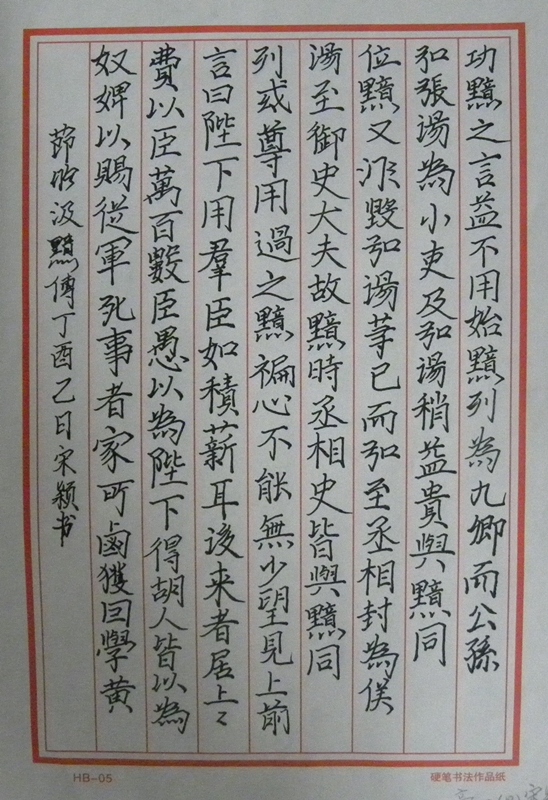 功黯之言益不用始黯列為九卿而公孫
弘張湯為小吏及弘湯稍益貴與黯同
位黯又非毀弘湯等已而弘至丞相封為侯
湯至御史大夫故黯時丞相史皆與黯同
列或尊用過之黯褊心不能無少望見上前
言曰陛下用羣臣如積薪耳後来者居上〻
費以臣萬百數臣愚以為陛下得胡人皆以為
奴婢以賜從軍死事者家所鹵獲因學黄
節临汲黯傳丁酉乙日宋颖书
HB-05
硬笔书法作品纸